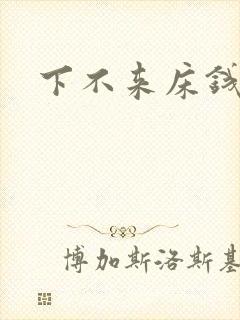 下不来床钱
博加斯洛斯基